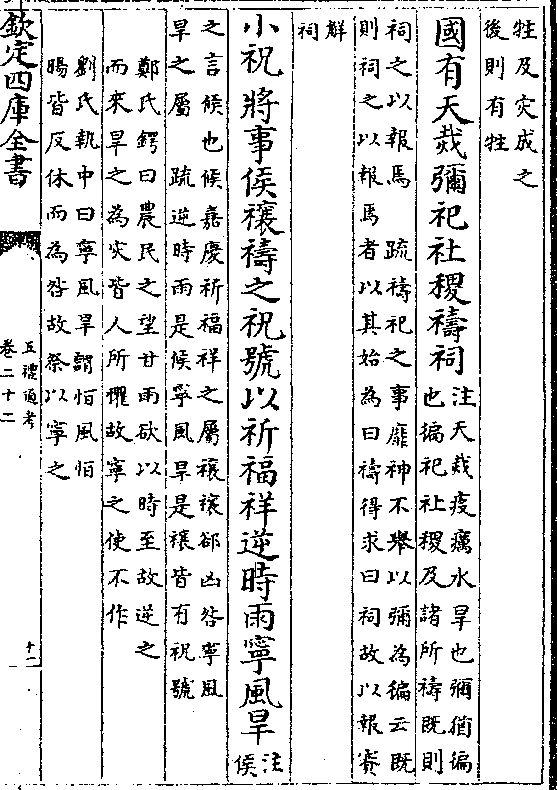 牲及灾成之
後則有牲
國有天烖彌祀社稷禱祠
注天烖疫癘水旱也彌猶徧
也徧祀社稷及諸所禱既則
祠之以報焉　疏禱祀之事靡神不舉以彌為徧云既
則祠之以報焉者以其始為曰禱得求曰祠故以報賽
解
祠
小祝將事侯禳禱之祝號以祈福祥逆時雨寧風旱
注
侯
之言候也候嘉慶祈福祥之屬禳禳郤凶咎寧風
旱之屬　疏逆時雨是候寧風旱是禳皆有祝號
鄭氏鍔曰農民之望甘雨欲以時至故逆之
而來旱之為灾皆人所懼故寧之使不作
劉氏執中曰寧風旱謂恒風恒
暘皆反休而為咎故祭以寧之
欽定四庫全書
五禮通考
卷二十二
十二